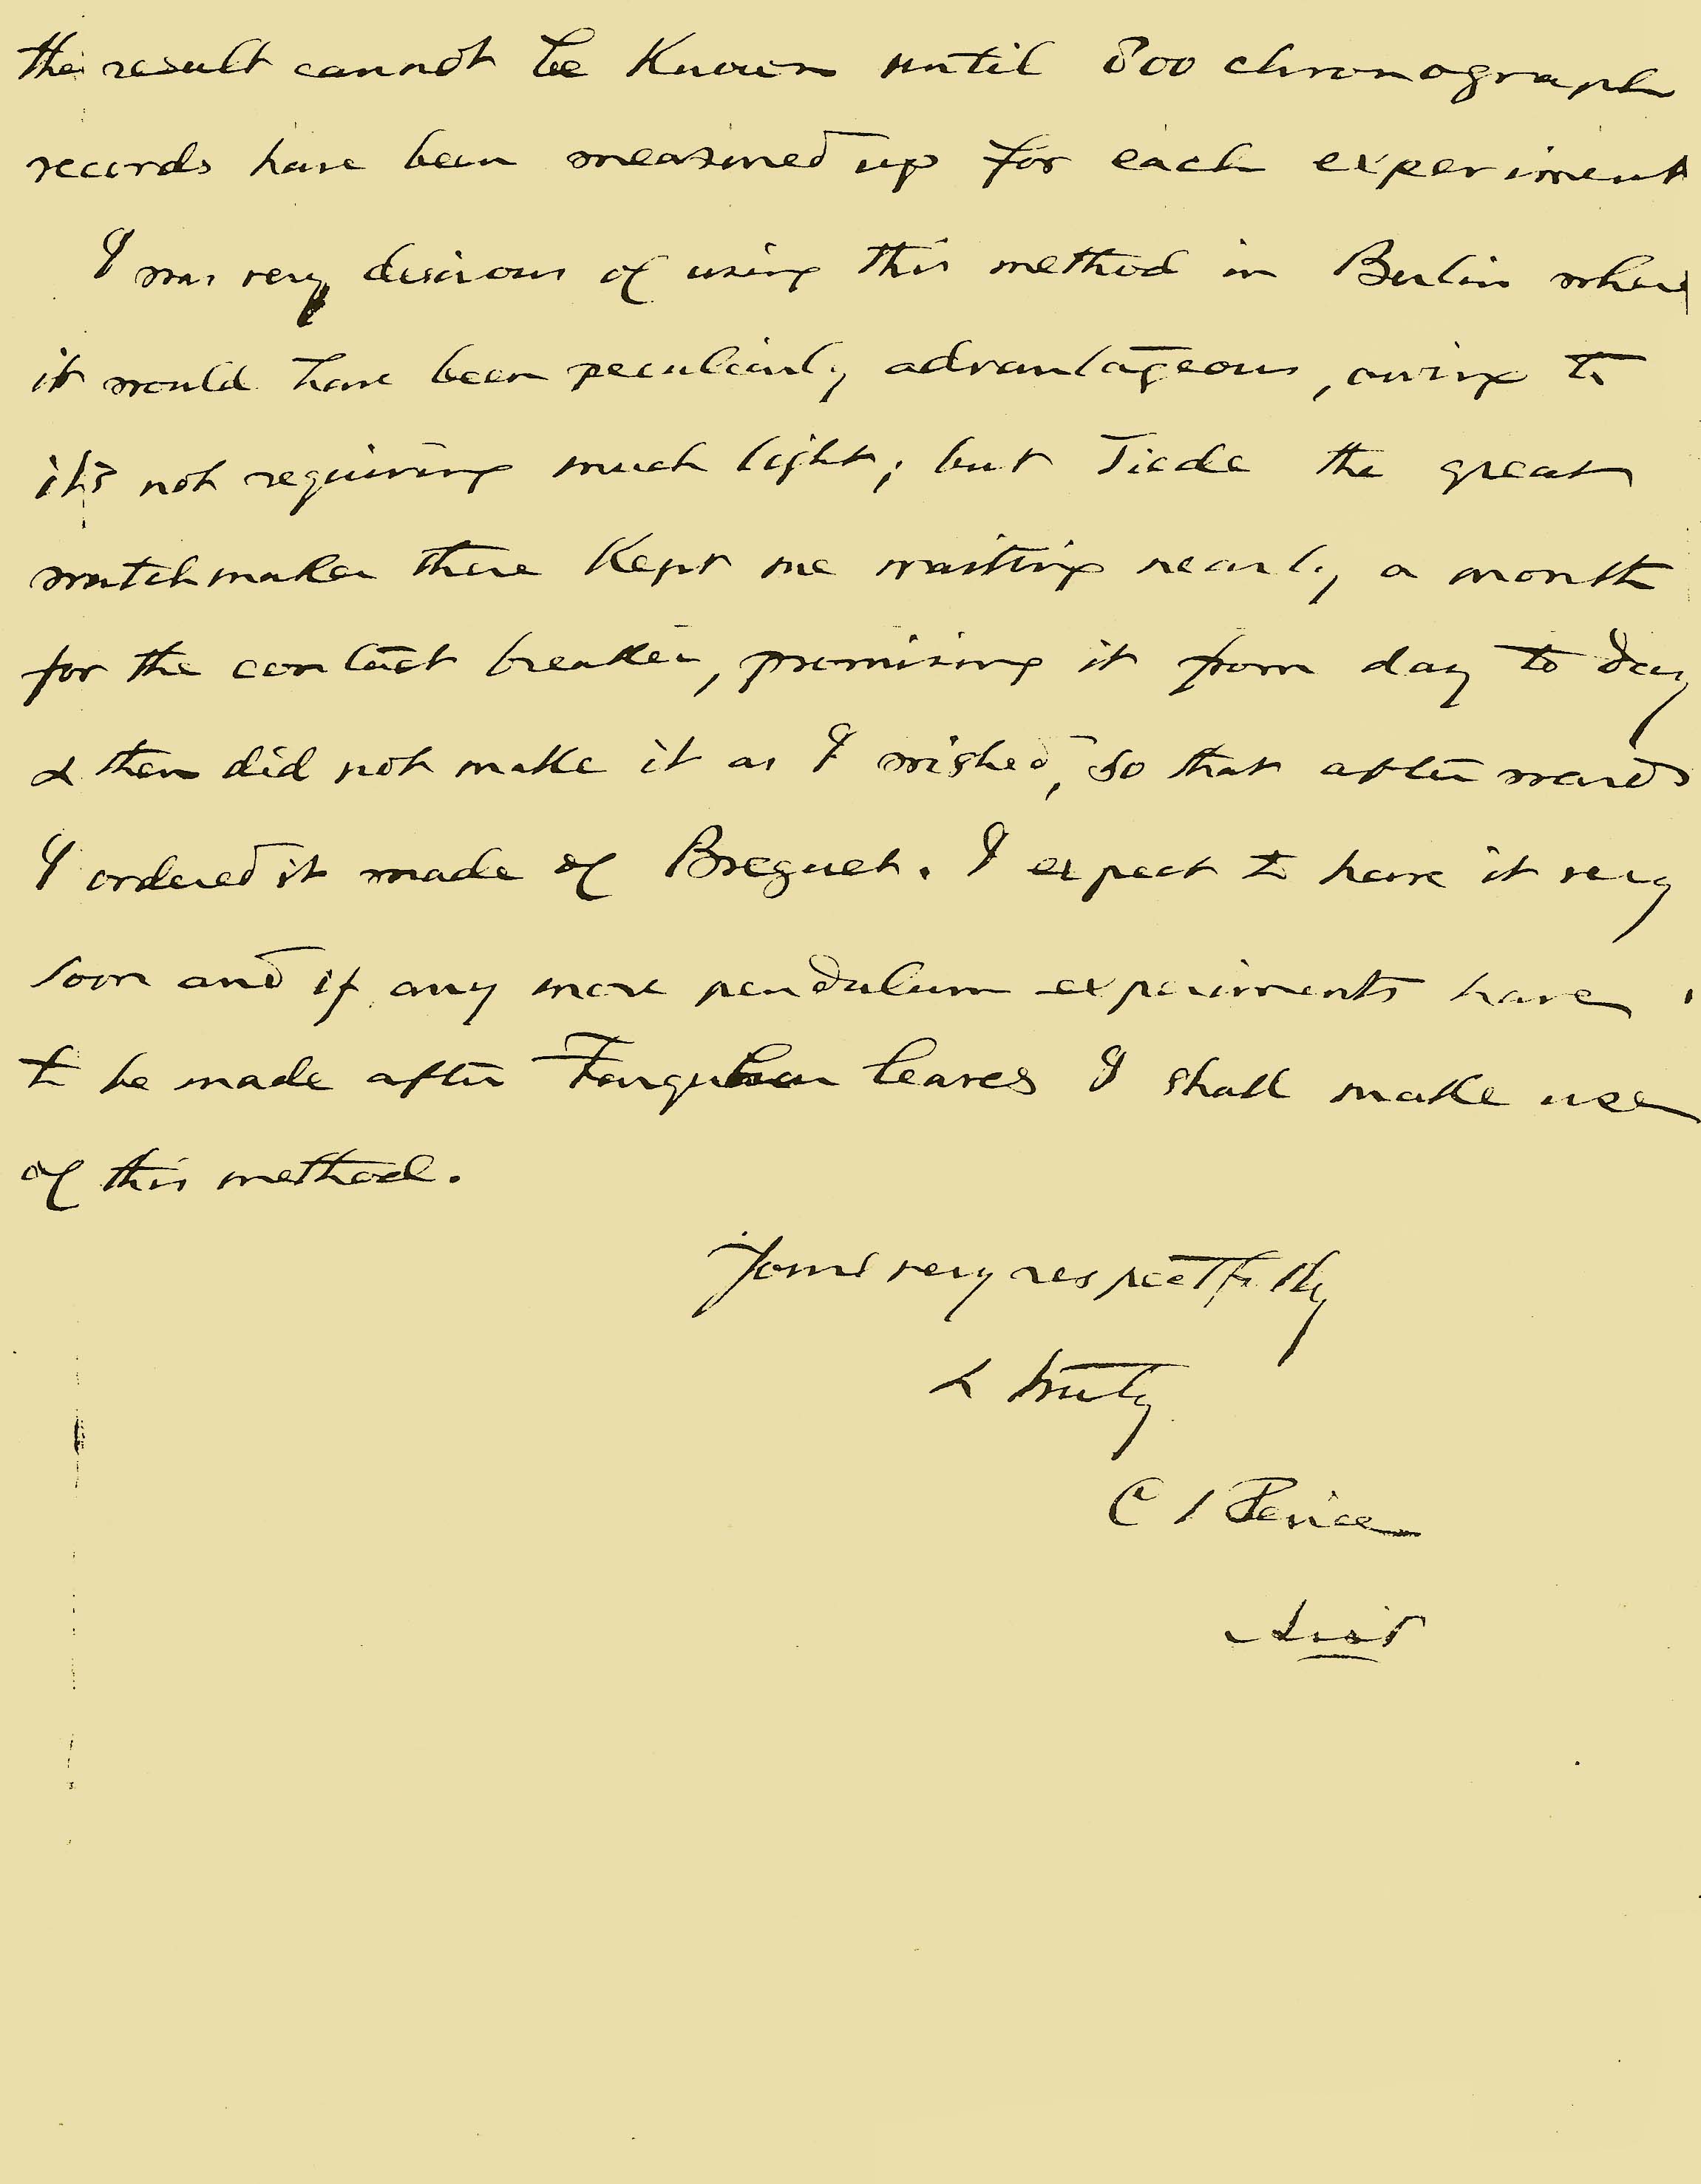 the result cannot be known until 800 chronograph
records have been measured up for each experiment
I was very desirous of using this method in Berlin where
it would have been peculiarly advantageous, owing to
its not requiring much light; but Tiede the great
watchmaker there kept me waiting nearly a month
for the contact breaker, promising it from day to day
& then did not make it as I wished, so that afterwards
I ordered it made of Breguet. I expect to have it very
soon and if any more pendulum experiments have
to be made after Farquhar leaves I shall make use
of this method.
Yours very respectfully
& truly
C S Peirce
Asst